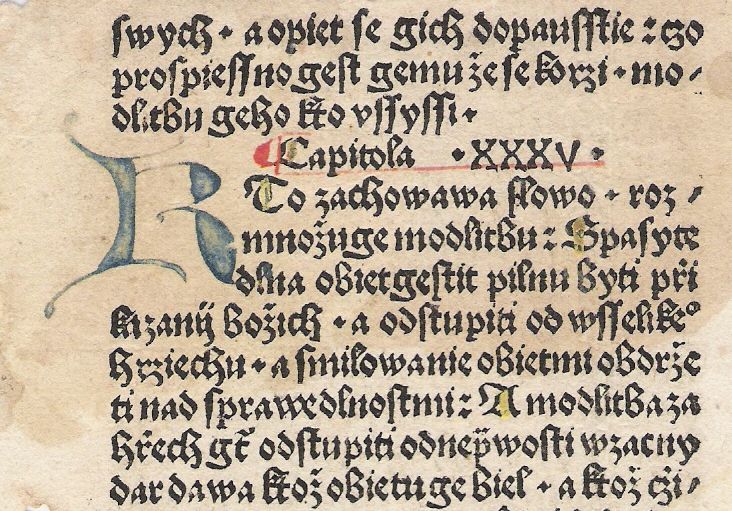 swych · a opiet se gich dopausstie : czo
prospiessno gest gemu že se korzi · mo⸗
dlitbu geho kto vssyssi ·
Capitola · XXXV ·
KTo zachowawa slowo · roz⸗
množuge modlitbu : Spasyte
dlna obiet gestit pilnu byti při
kızanij božich · a odstupiti od wsselikeº
hrziechu · a smilowanie obietmi obdrže
ti nad sprawedlnostmi : A modlitba za
hřech gt̃ odstupiti od neṗwosti wzacny
dar dawa ktož obietuge biel · a ktož czi⸗